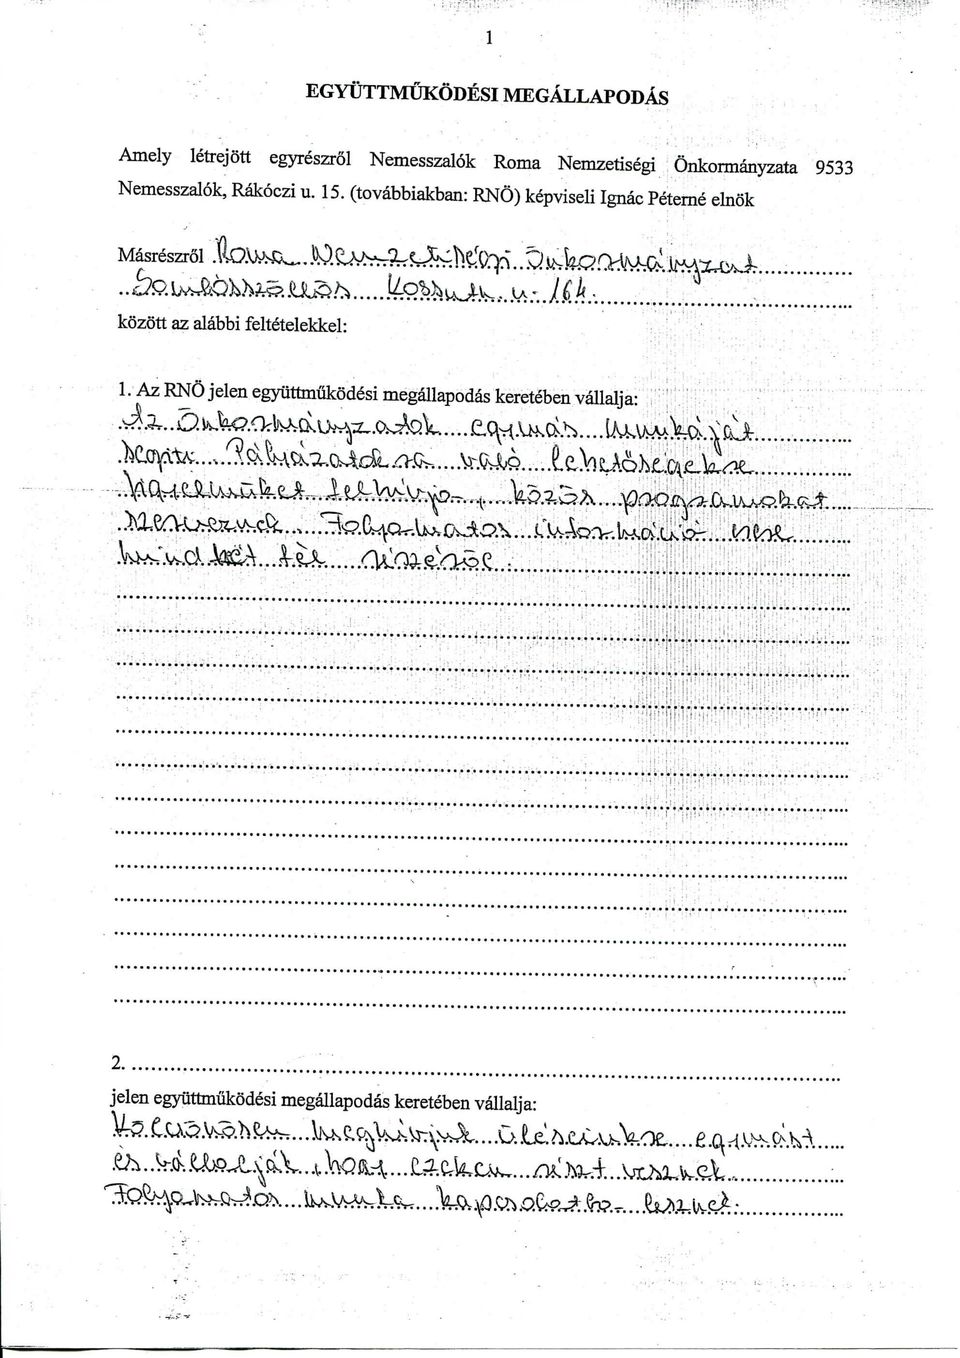 1
EGYÜTTMŰKÖDÉSI MEGÁLLAPODÁS
Amely létrejött egyrészről Nemesszalók Roma Nemzetiségi Önkormányzata 9533
Nemesszalók, Rákóczi u. 15. (továbbiakban: RNÖ) képviseli Ignác Péterné elnök
Másrészről Roma Nemzetiségi Önkormányzat
Somlószőllős Kossuth u. 164.
között az alábbi feltételekkel:
1. Az RNÖ jelen együttműködési megállapodás keretében vállalja:
Az Önkormányzatok egymás munkáját
segiti. Pályázatokra való lehetőségekre
figyelmüket felhivja, közös programokat
szerveznek. Folyamatos információ
mindkét fél részéröl.
2.
jelen együttműködési megállapodás keretében vállalja:
Kölcsönösen meghivjuk üléseinkre egymást
és vállalják, hogy ezeken részt vesznek.
Folyamatos munka kapcsolatba lesznek.